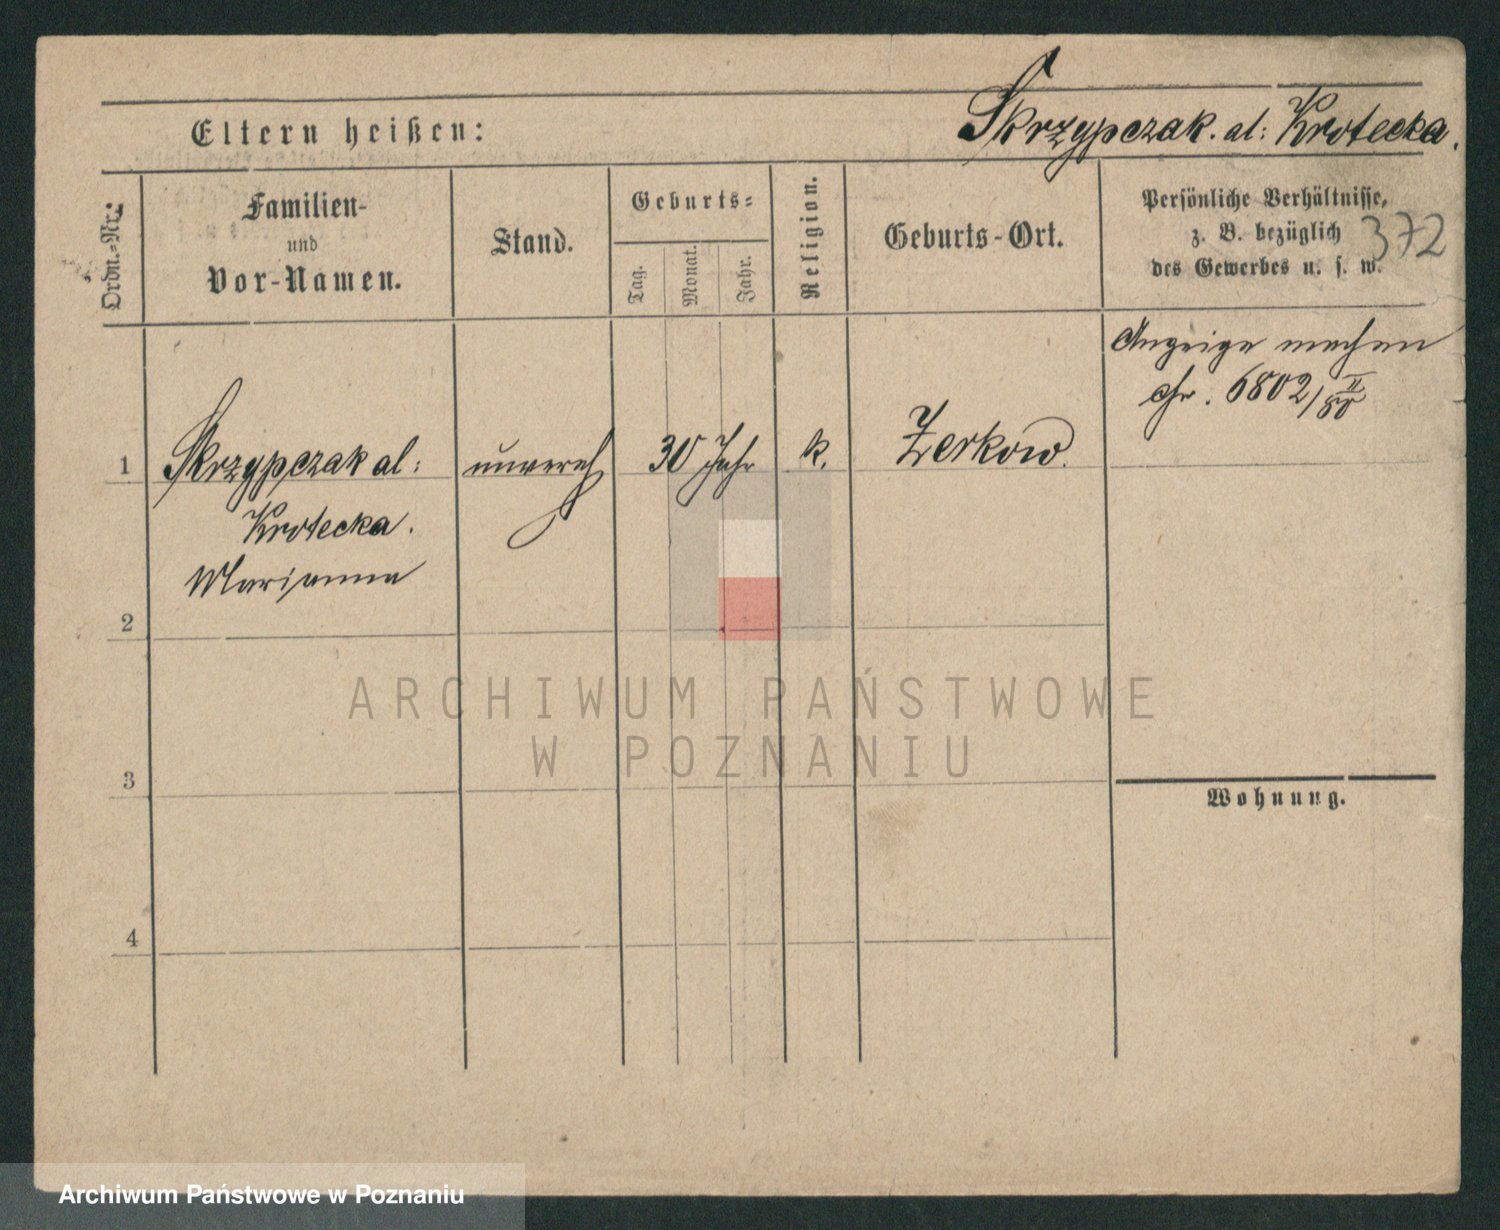 Skrzypczak. al: Krotecka.
Eltern heißen:
Ordn.-Nr:
Familien-
und
Vor-Namen.
Stand.
Geburts-
Tag.
Monat.
Jahr.
Religion.
Geburts-Ort.
Persönliche Verhältnisse,
z. B. bezüglich
des Gewerbes u. s. w.
372
Anzeige machen
6802/II 80
1
Skrzypczak al:
Krotecka.
Marianna
unvereh
30 Jahr
k.
Zerkow.
2
3
4
Wohnung.
ARCHIWUM PAŃSTWOWE
W POZNANIU
Archiwum Państwowe w Poznaniu